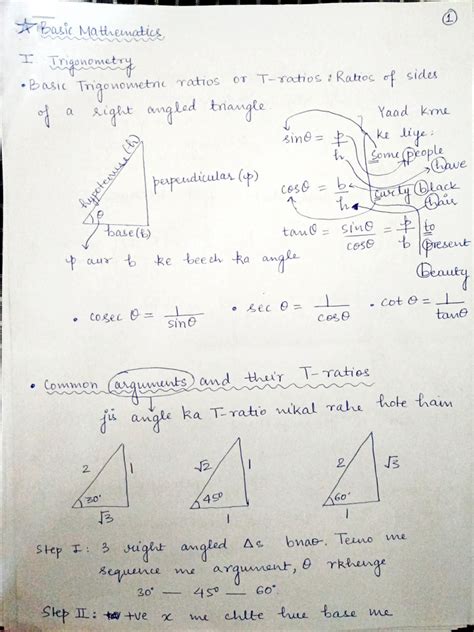 ①
☆ Basic Mathematics
I Trigonometry
• Basic Trigonometric ratios or T-ratios : Ratios of sides
of a right angled triangle.
hypotenuse (h)
perpendicular (p)
θ
base (b)
p aur b ke beech ka angle
Yaad krne
ke liye:
sinθ = p/h
some people
have
cosθ = b/h
curly black
hair
tanθ = sinθ/cosθ = p/b
to
present
beauty
• cosec θ = 1/sinθ • sec θ = 1/cosθ • cot θ = 1/tanθ
• Common arguments and their T-ratios
jis angle ka T-ratio nikal rahe hote hain
2 1 30° √3
√2 1 45° 1
2 √3 60° 1
Step I : 3 right angled Δs bnao. Teeno me
sequence me argument, θ rkhenge
30° — 45° — 60°
Step II : +ve x me chlte hue base me